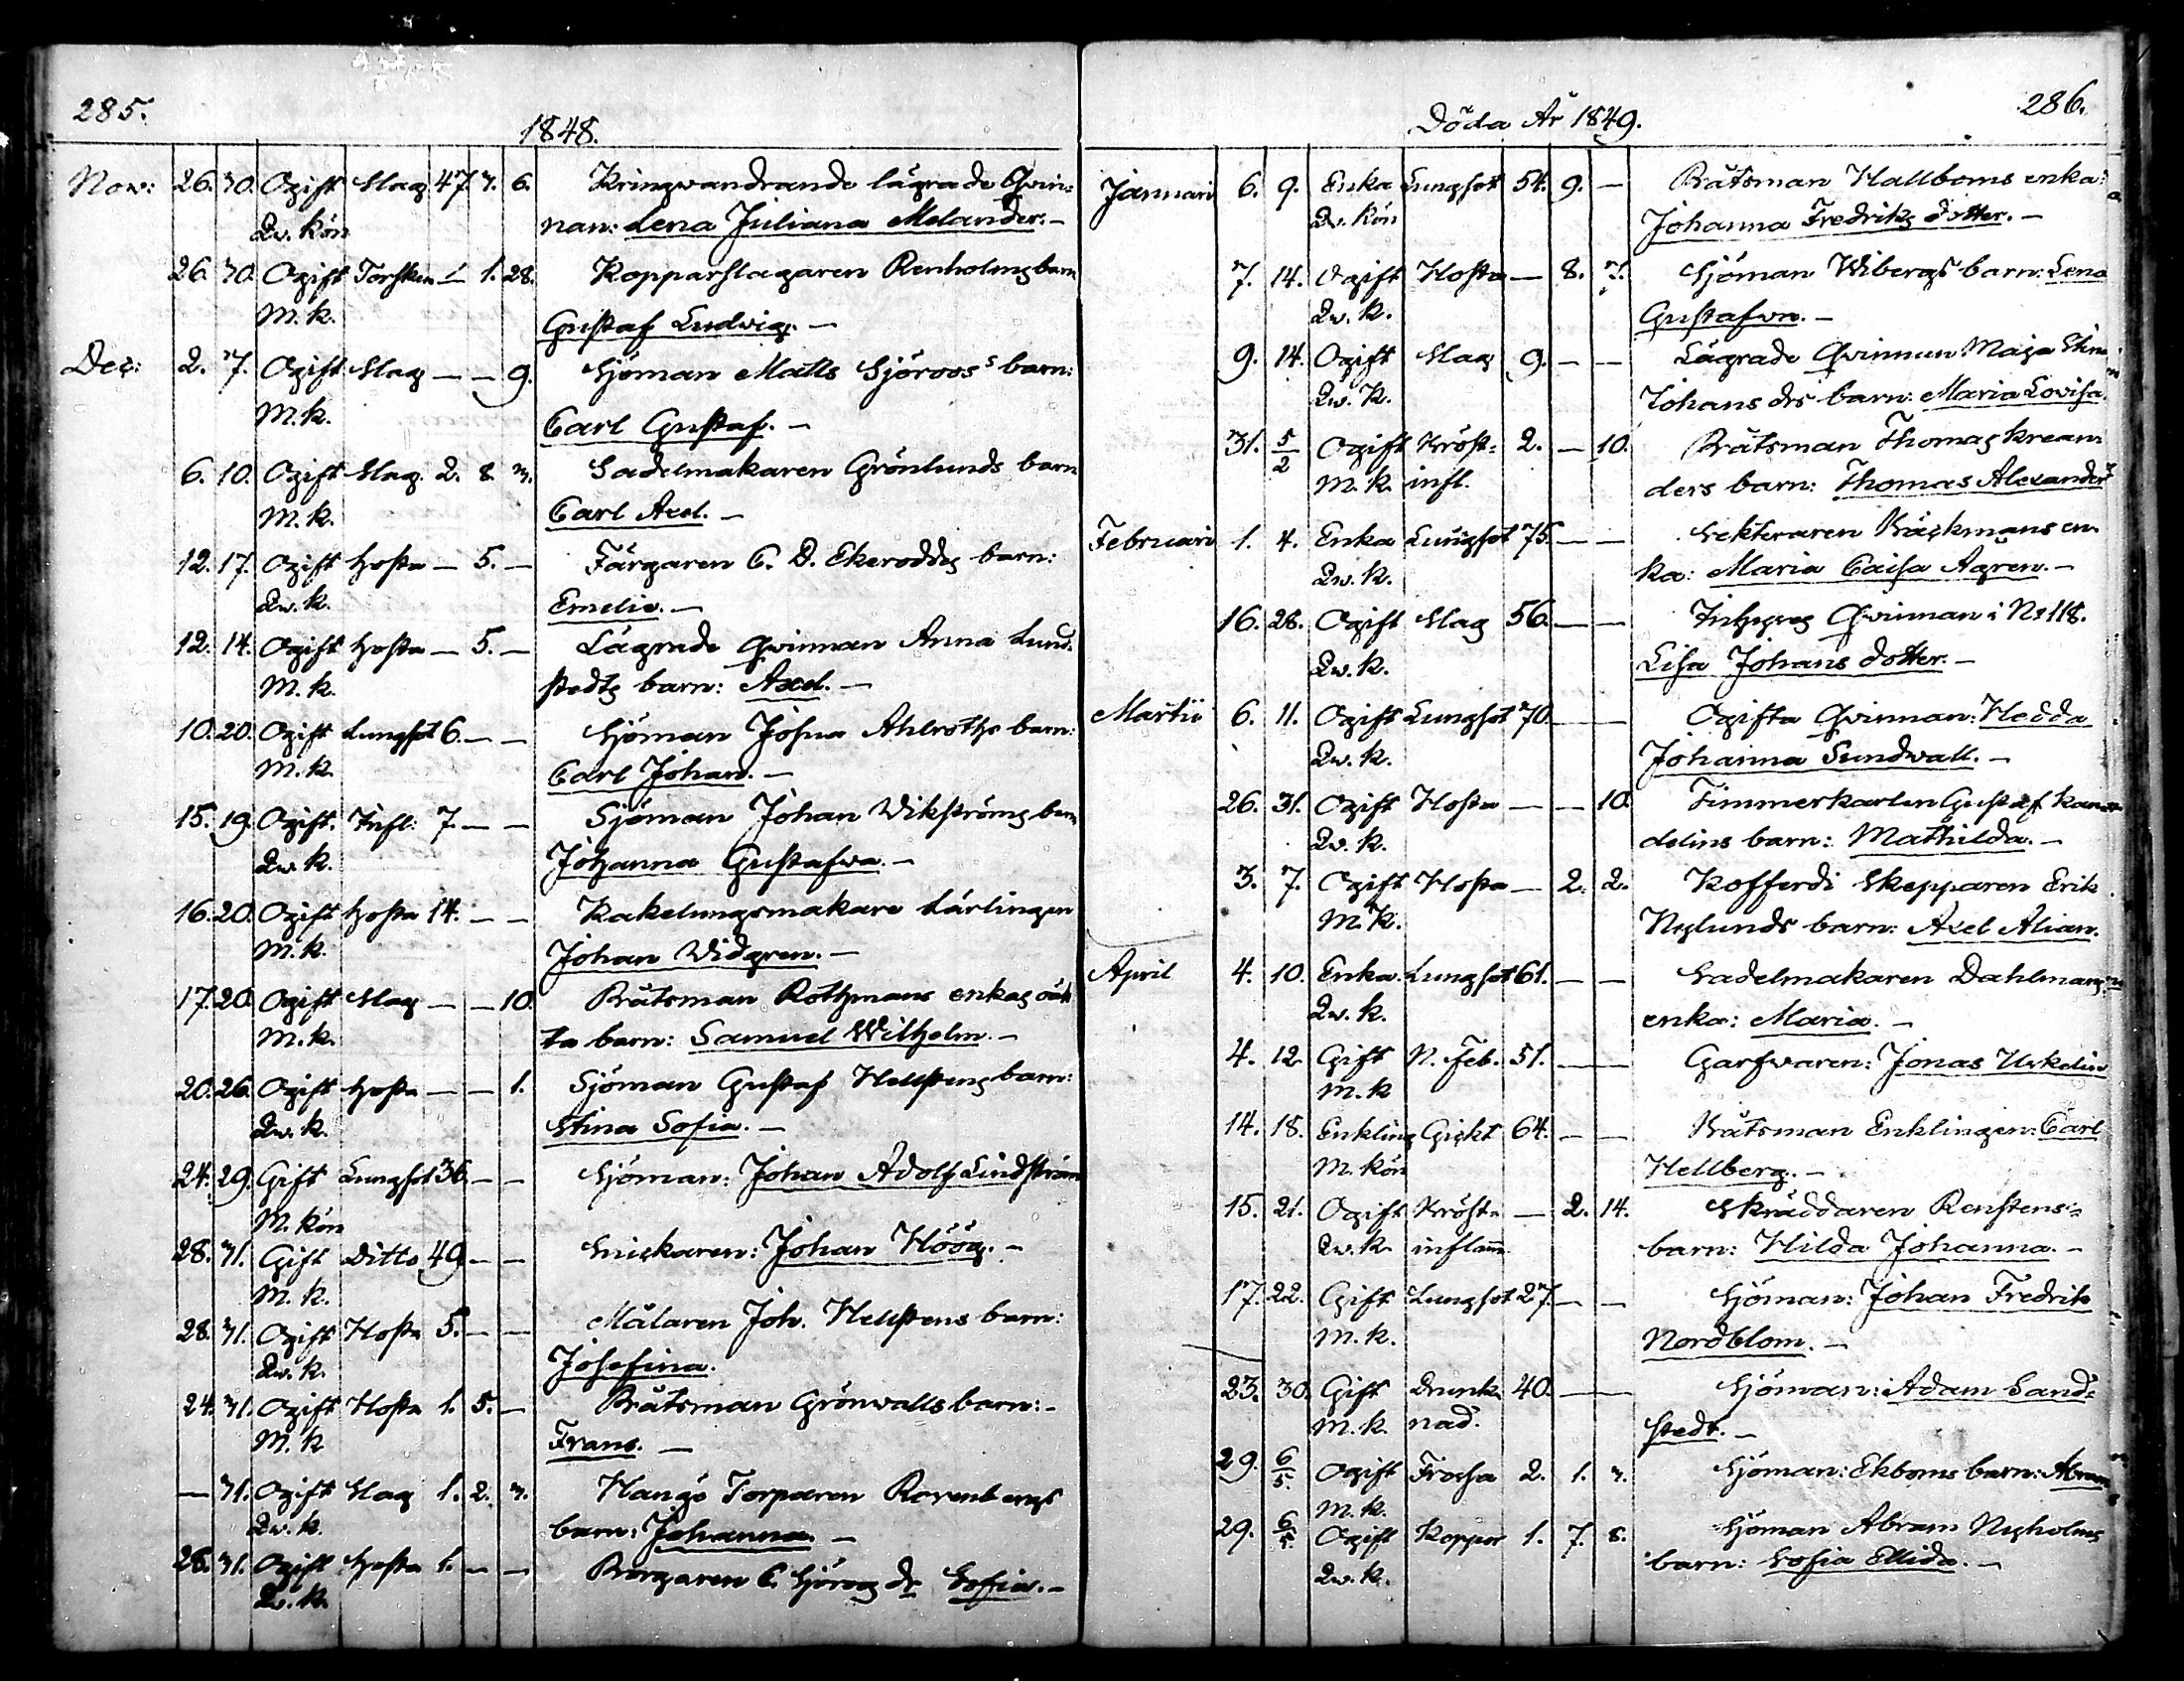 285.
1848.
Nov: 26. 30. Ogift Slag 47. 7. 6. Kringvandrande lägrade Qvin-
Qv. kön nan: Lena Juliana Melander. -
26. 30. Ogift Torsken - 1. 28. Kopparslagaren Renholms barn
M. k. Gustaf Ludvig. -
Dec: 2. 7. Ogift Slag - - 9. Sjöman Matts Sjöroos's barn:
M. k. Carl Gustaf. -
6. 10. Ogift Slag. 2. 8. 3. Sadelmakaren Grönlunds barn
M. k. Carl Axel. -
12. 17. Ogift Hosta - 5. - Färgaren C. D. Ekerodds barn:
Qv. k. Emelie. -
12. 14. Ogift Hosta - 5. - Lägrade Qvinnan Anna Lund-
M. k. stedts barn: Axel. -
10. 20. Ogift Lungsot 6. - - Sjöman Johan Ahlroths barn:
M. k. Carl Johan. -
15. 19. Ogift. Infl: 7. - - Sjöman Johan Wikströms barn
Qv. k. Johanna Gustafva. -
16. 20. Ogift Hosta 14. - - Kakelungsmakare Lärlingen
M. k. Johan Widgren. -
17. 20. Ogift Slag - - 10. Båtsman Rothmans enkas oäk
M. k. ta barn: Samuel Wilhelm. -
20. 26. Ogift Hosta - - 1. Sjöman Gustaf Hellstens barn:
Qv. k. Stina Sofia. -
24. 29. Gift Lungsot 36. - - Sjöman: Johan Adolf Lindström
M. kön
28. 31. Gift Ditto 49 - - Snickaren: Johan Höög. -
M. k.
28. 31. Ogift Hosta 5. - - Målaren Joh. Hellstens barn:
Qv. k. Josefina.
24. 31. Ogift Hosta 1. 5. - Båtsman Grönvalls barn: -
M. k Frans. -
- 31. Ogift Slag 1. 2. 3. Hangö Torparen Rosenbergs
Qv. k. barn: Johanna. -
28. 31. Ogift Hosta 1. - - Borgaren C. Sjöroos dr Sofia. -
Qv. k.
286.
Döda År 1849.
Januari 6. 9. Enka Lungsot 54. 9. - Båtsman Hallboms enka:
Qv. kön Johanna Fredriks dotter. -
7. 14. Ogift Hosta - 8. 7. Sjöman Wibergs barn: Lena
Qv. k. Gustafva. -
9. 14. Ogift Slag 9. - - Lägrade Qvinnan Maja Stina
Qv. k. Johans drs barn: Maria Lovisa.
31. 5/2 Ogift Bröst- 2. - 10. Båtsman Thomas Krean-
M. k. infl. ders barn: Thomas Alexander
Februari 1. 4. Enka Lungsot 75. - - Bäckmans en-
Qv. k. ka: Maria Caisa Ågren. -
16. 28. Ogift Slag 56. - - Inhyses Qvinnan i No 118.
Qv. k. Lisa Johans dotter. -
Martii 6. 11. Ogift Lungsot 70. - Ogifta Qvinnan: Hedda
Qv. k. Johanna Sundvall. -
26. 31. Ogift Hosta - - 10. Timmerkarlen Gustaf Kan-
Qv. k. delins barn: Mathilda. -
3. 7. Ogift Hosta - 2. 2. Kofferdi Skepparen Erik
M. k. Nylunds barn: Axel Alian.
April 4. 10. Enka. Lungsot 61. - - Sadelmakaren Dahlmans
Qv. k. enka: Maria. -
4. 12. Gift N. Feb. 51. - Garfvaren: Jonas
M. k
14. 18. Enkling Gickt 64. - - Båtsman Enklingen: Carl
M. kön Hellberg. -
15. 21. Ogift Bröst- - 2. 14. Skräddaren Renstens-
Qv. k. inflam. barn: Hilda Johanna. -
17. 22. Gift Lungsot 27. - - Sjöman: Johan Fredrik
M. k. Nordblom. -
23. 30. Gift Drunk- 40. - Sjöman: Adam Sand-
M. k. nad. stedt. -
29. 6/5. Ogift Frossa 2. 1. 3. Sjöman: Ekboms barn: Abram
M. k.
29. 6/5 Ogift Koppor 1. 7. 8. Sjöman Abram Nyholms
Qv. k. barn: Sofia Ellida. -